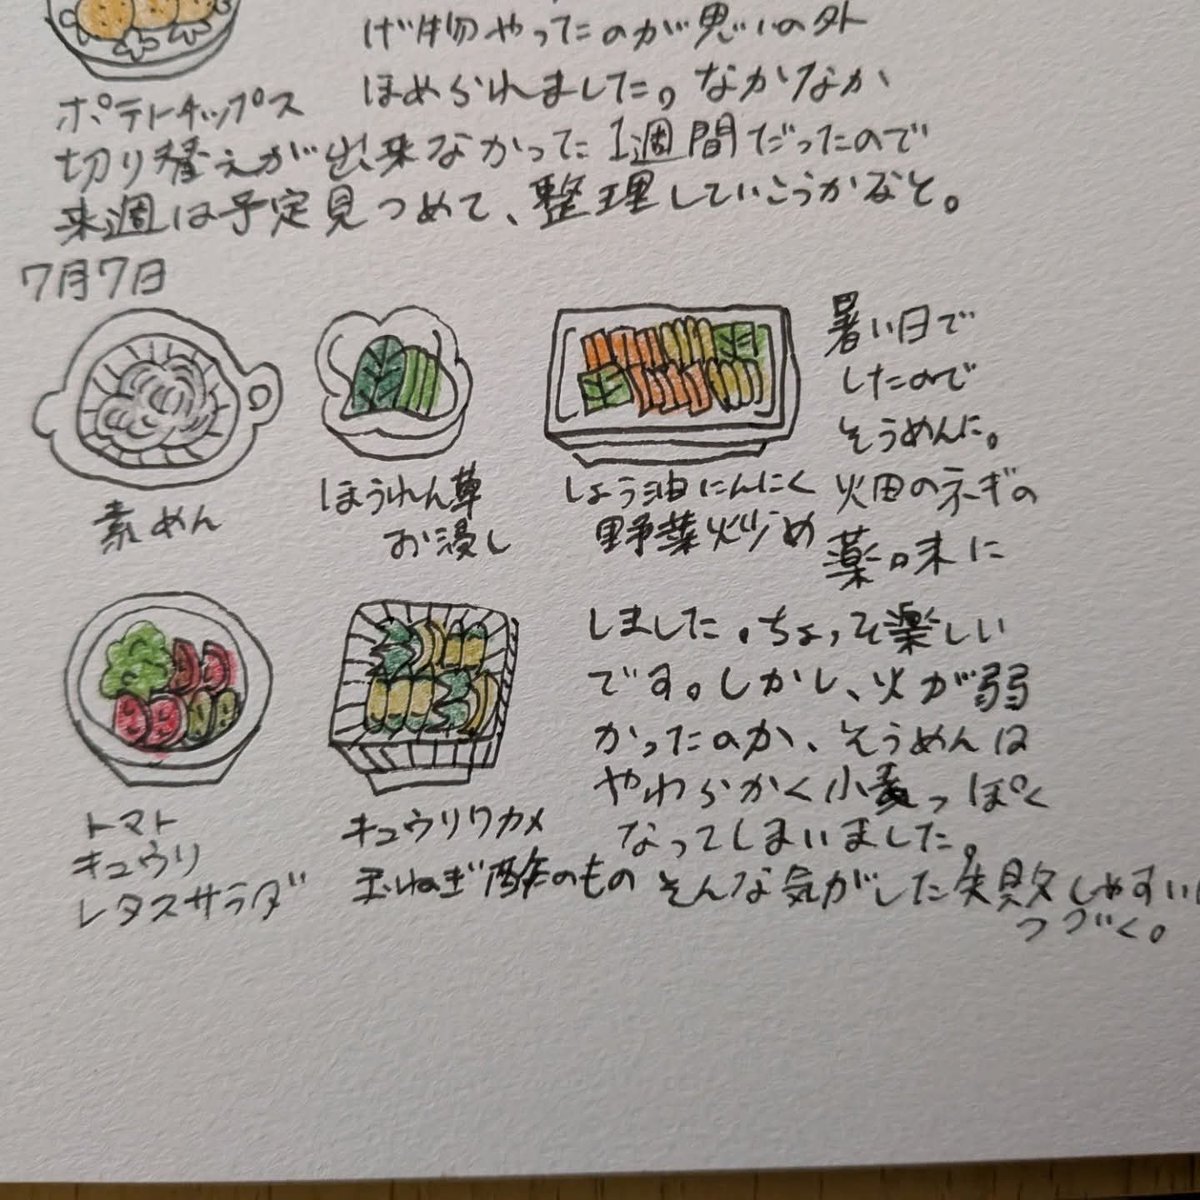 げ物やったのが思いの外
ほめられました。なかなか
ポテトチップス
切り替えが出来なかった1週間だったので
来週は予定見つめて、整理していこうかなと。
7月7日
素めん
ほうれん草
お浸し
しょう油にんにく
野菜炒め
暑い日で
したので
そうめんに。
畑のネギの
薬味に
しました。ちょっと楽しい
です。しかし、火が弱
かったのか、そうめんは
やわらかく小麦っぽく
なってしまいました。
そんな気がした失敗しやすい
つづく。
トマト
キュウリ
レタスサラダ
キュウリワカメ
玉ねぎ酢のもの